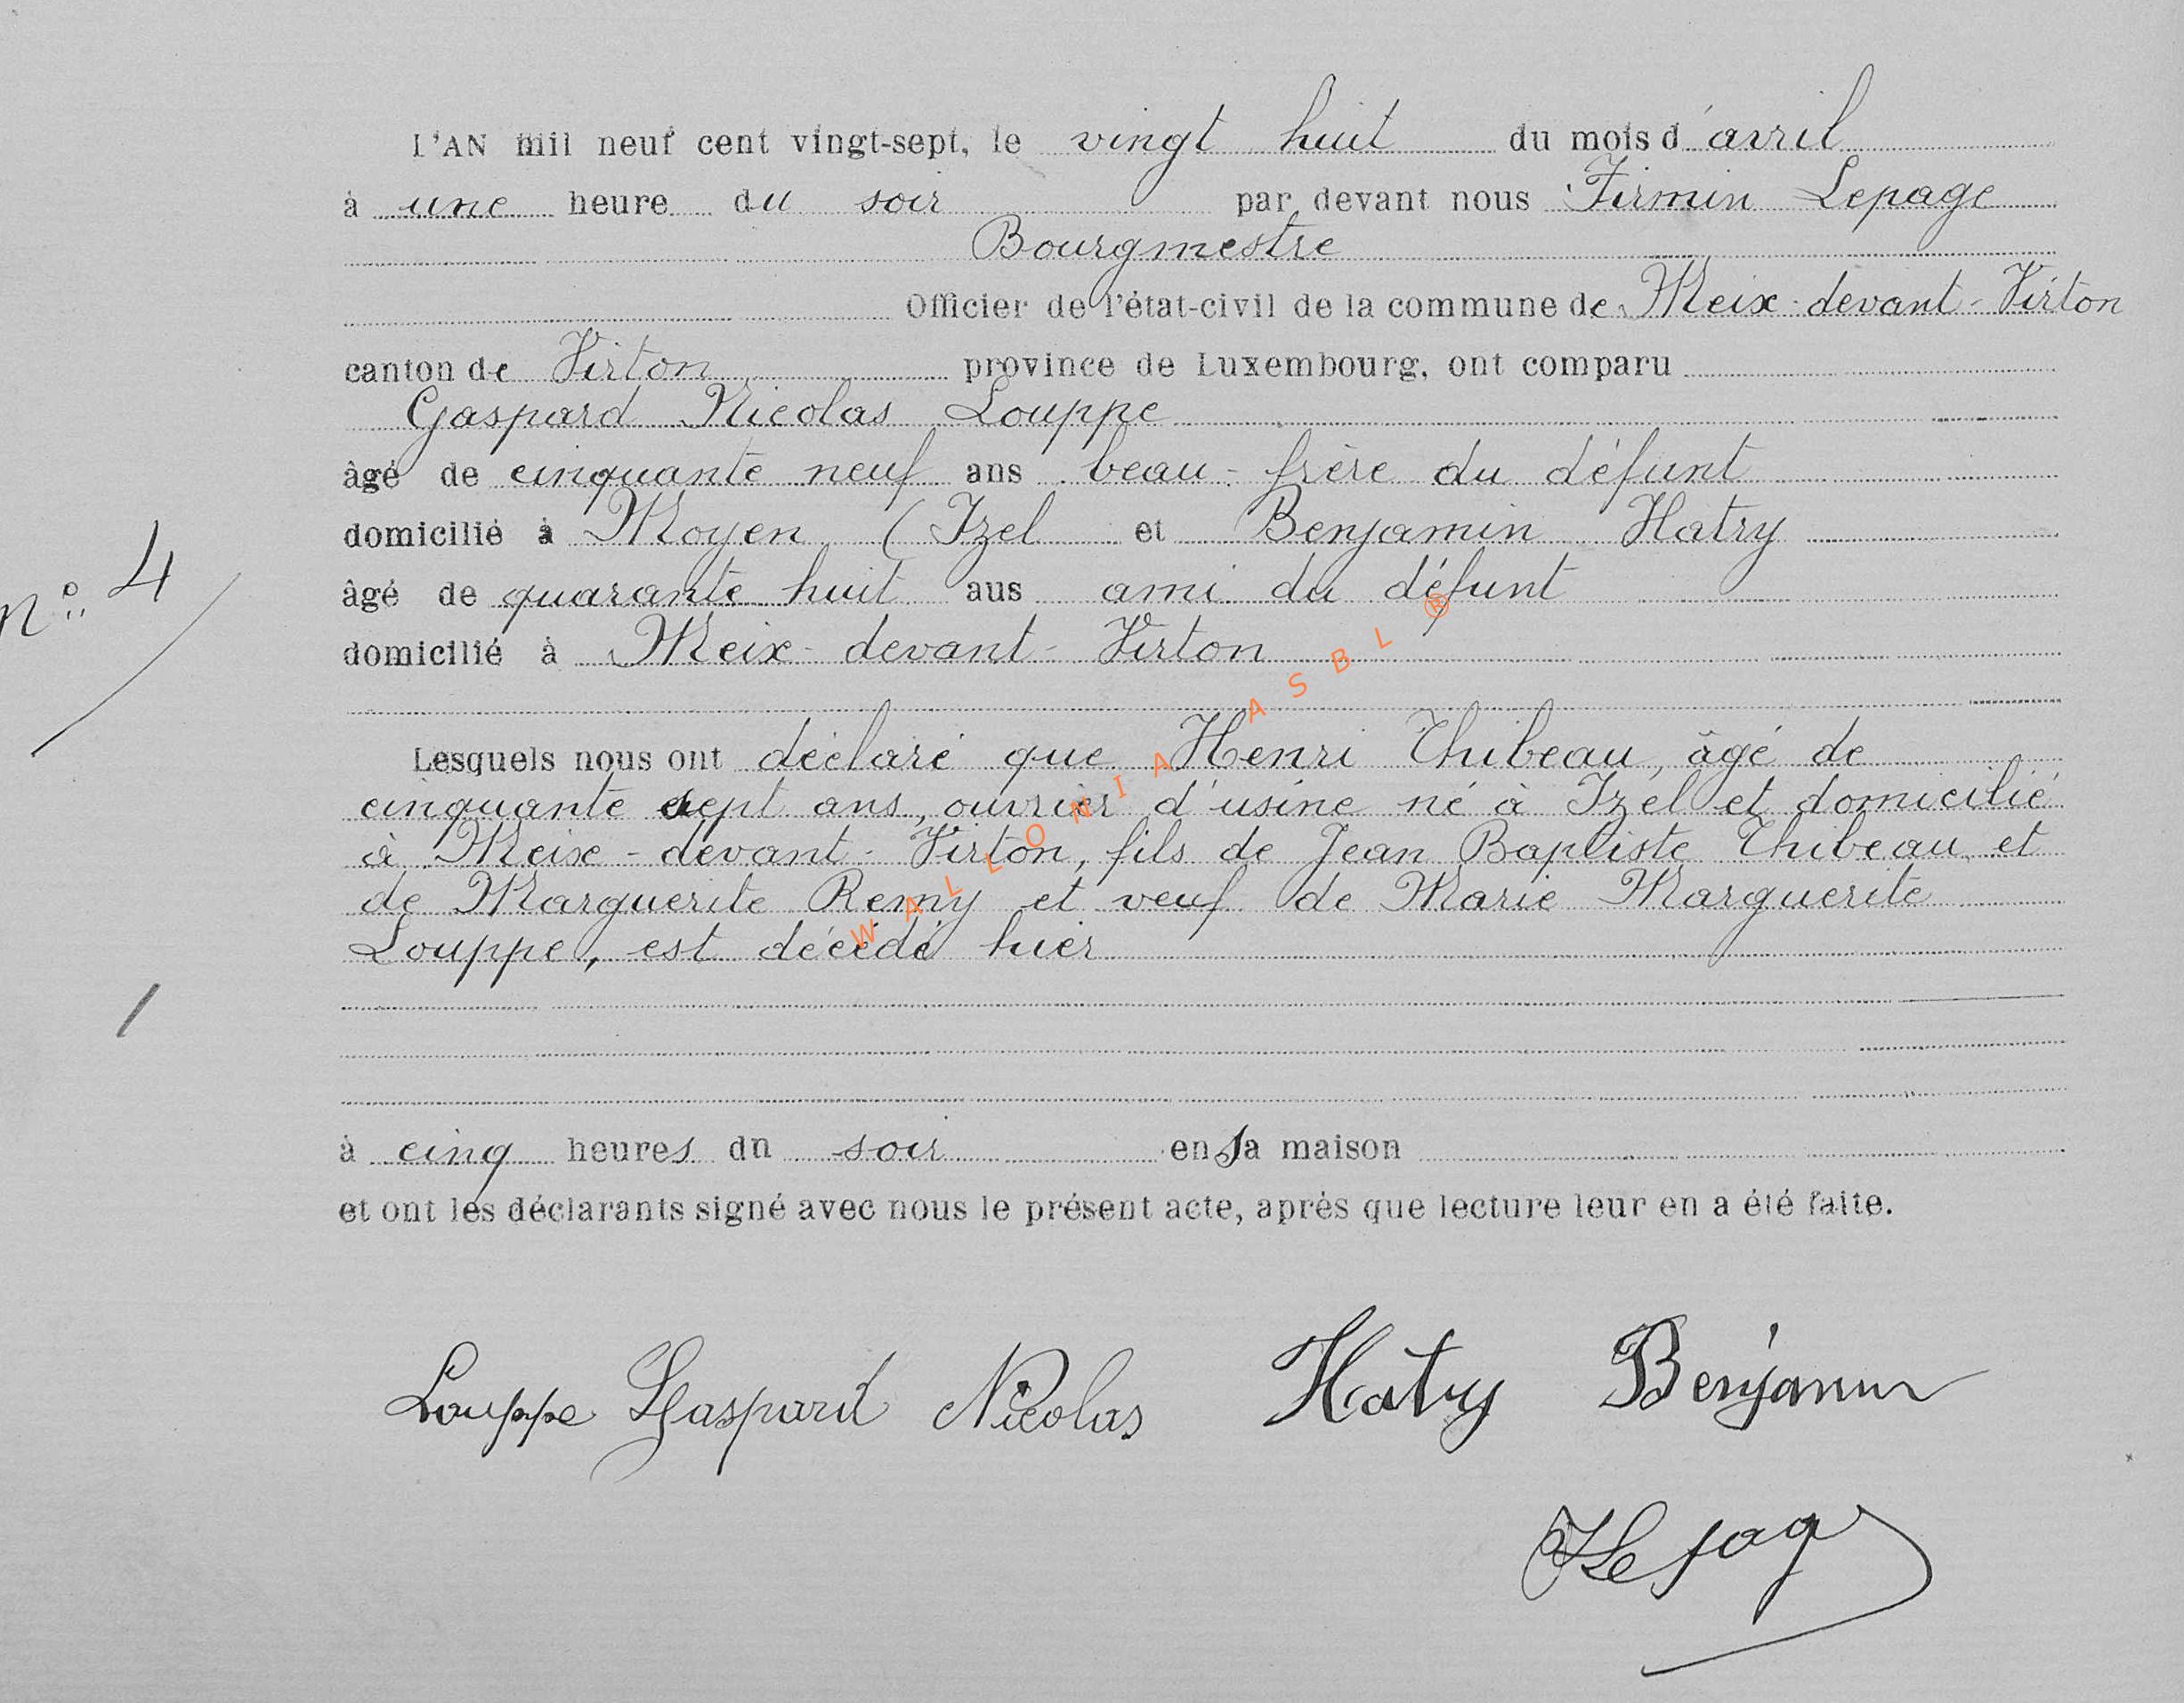 L'AN mil neuf cent vingt-sept, le vingt huit du mois d'avril
à une heure du soir par devant nous Firmin Lepage
Bourgmestre
Officier de l'état-civil de la commune de Meix-devant-Virton
canton de Virton province de Luxembourg, ont comparu
Gaspard Nicolas Louppe
âgé de cinquante neuf ans beau-frère du défunt
domicilié à Moyen (Izel et Benjamin Hatry
nº 4
âgé de quarante huit ans ami du défunt
domicilié à Meix-devant-Virton
Lesquels nous ont déclaré que Henri Thibeau, âgé de
cinquante sept ans, ouvrier d'usine né à Izel et domicilié
à Meix-devant-Virton, fils de Jean Baptiste Thibeau et
de Marguerite Remy et veuf de Marie Marguerite
Louppe, est décédé hier
à cinq heures du soir en sa maison
et ont les déclarants signé avec nous le présent acte, après que lecture leur en a été faite.
Louppe Gaspard Nicolas Hatry Benjamin
FLepage
WALLONIA ASBL ®